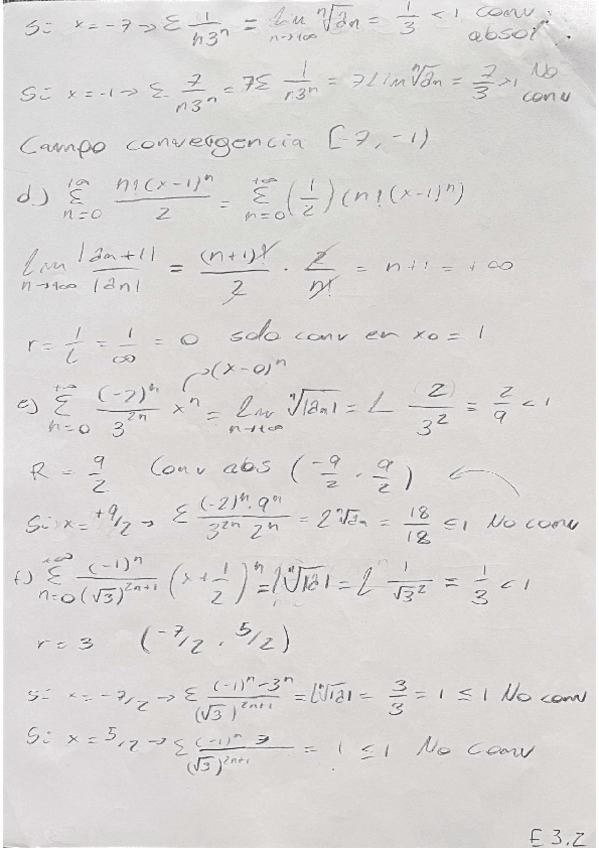 Si x = -7 → Σ 1/(n3^n) = lim_{n→+∞} ⁿ√an = 1/3 < 1 Conv absol.
Si x = -1 → Σ 7/(n3^n) = 7Σ 1/(n3^n) = 7 Lim ⁿ√an = 7/3 > 1 No conv
Campo convergencia [-7, -1)
d.) Σ_{n=0}^{+∞} n!(x-1)^n/2 = Σ_{n=0}^{+∞} (1/2)(n!(x-1)^n)
Lim_{n→+∞} |an+1|/|an| = (n+1)!/2 · 2/n! = n+1 = +∞
r = 1/L = 1/∞ = 0 solo conv en x0 = 1
→(x-0)^n
e) Σ_{n=0}^{+∞} (-2)^n/3^{2n} x^n = Lim_{n→+∞} ⁿ√|an| = L 2/3^2 = 2/9 < 1
R = 9/2 Conv abs (-9/2, 9/2)
Si x = +9/2 → Σ (-2)^n·9^n/(3^{2n} 2^n) = L ⁿ√an = 18/18 ≤ 1 No conv
f.) Σ_{n=0}^{+∞} (-1)^n/(√3)^{2n+1} (x+1/2)^n = L ⁿ√|a| = L 1/√3^2 = 1/3 < 1
r = 3 (-7/2, 5/2)
Si x = -7/2 → Σ (-1)^n-3^n/(√3)^{2n+1} = L ⁿ√|a| = 3/3 = 1 ≤ 1 No conv
Si x = 5/2 → Σ (-1)^n 3/(√3)^{2n+1} = 1 ≤ 1 No conv
E 3.2